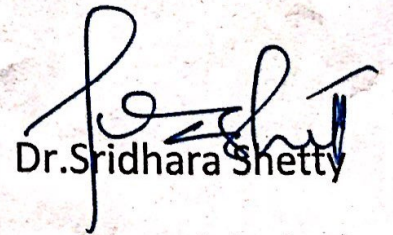 Dr.Sridhara Shetty